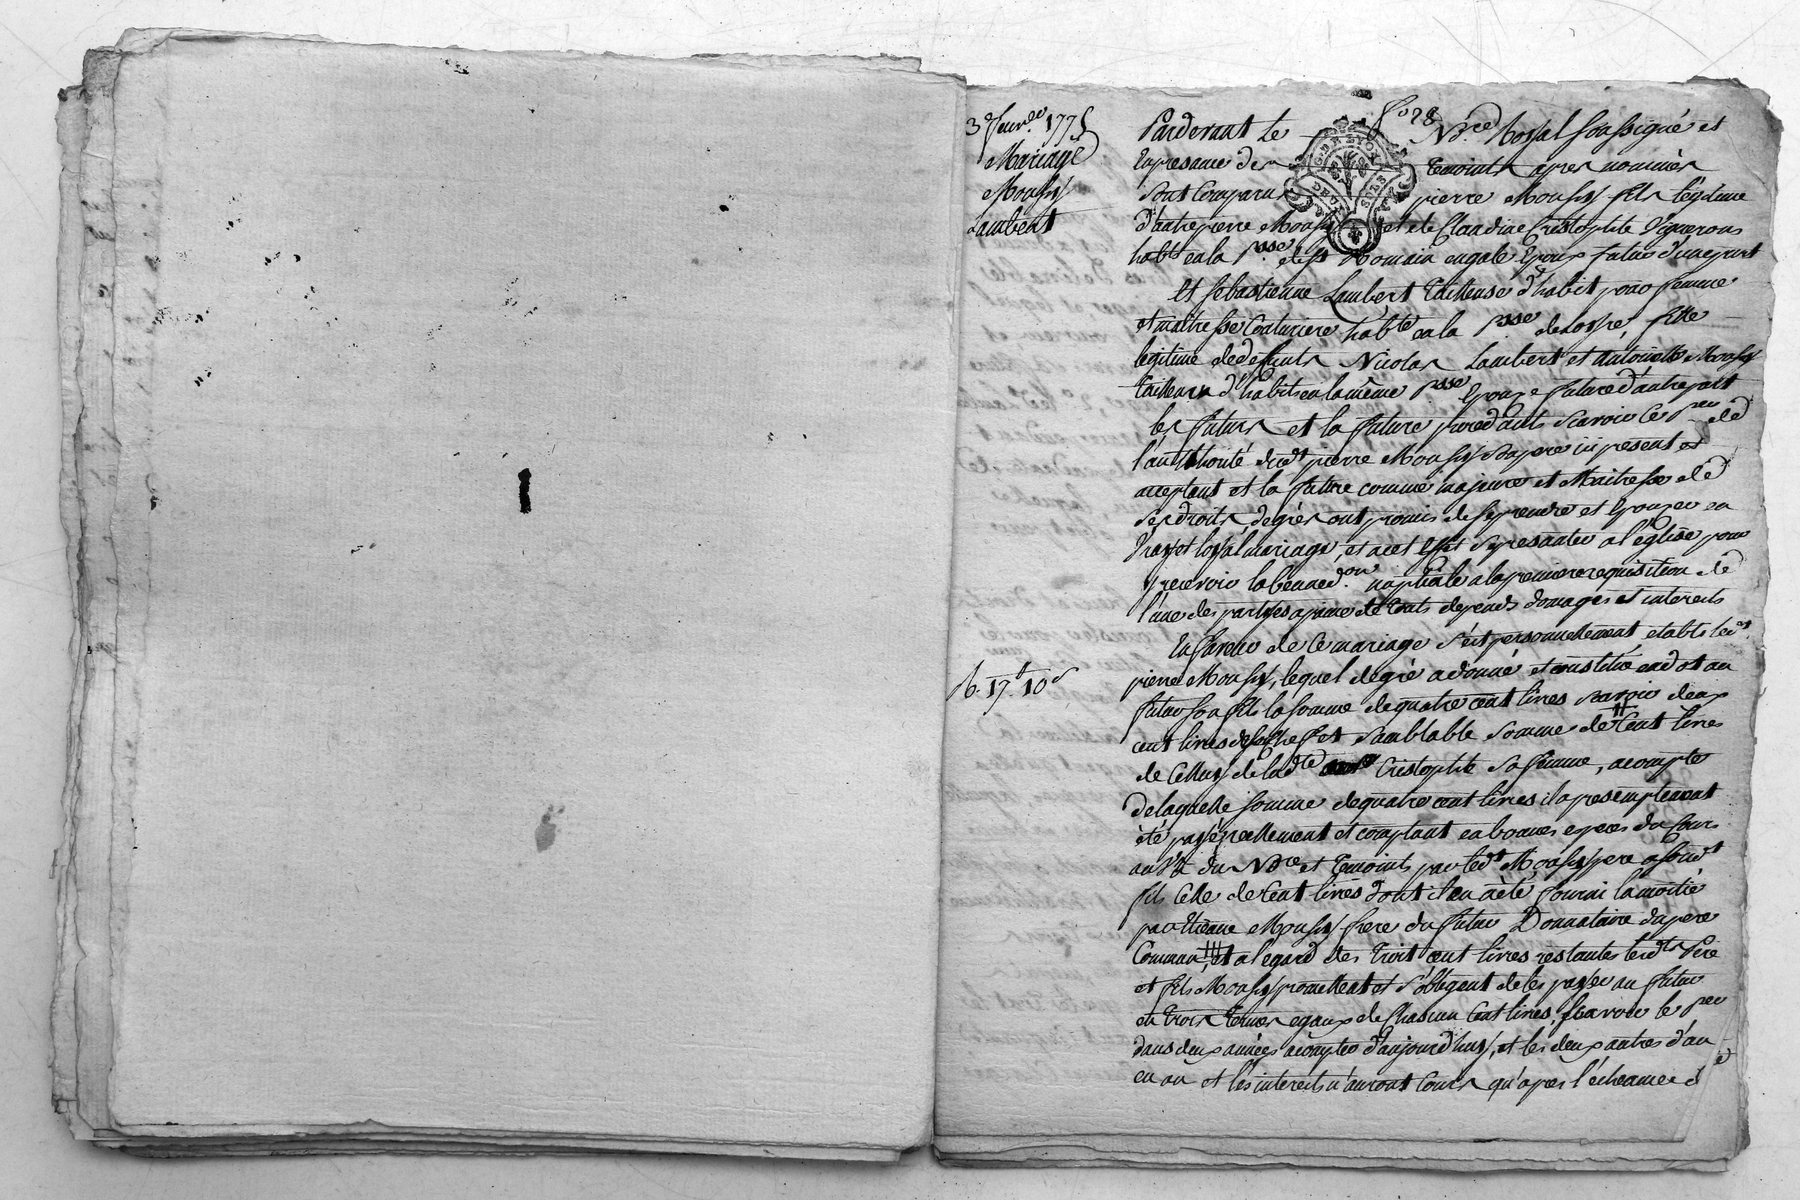 3e fevr.er 1775
Mariage
Moussy
Lambert
fo 28
Pardevant le N.re Royal soussigné et
En presence des temoins apres nommés
sont Comparus pierre Moussy fils légitime
d'autre pierre Moussy et de Claudine Cristophle Vignerons
hab.ts en la P.sse de st Romain Epoux futur d'une part
Et Sebastienne Lambert tailleuse d'habit pour femme
et maitresse Couturiere hab.te en la P.sse de fille
legitime de defunts Nicolas Lambert et Antoinette Moussy
tailleur d'habits en la même P.sse Epouse future d'autre part
les futurs et la future procedants scavoir le p.er de
l'authorité dud.t pierre Moussy son pere ici present et
acceptant et la future comme majeure et Maitresse de
ses droits, de grés ont promis de se prendre et Epouser en
vray et loyal mariage, et a cet effet se presenter a l'église pour
y recevoir la bened.on nuptiale a la premiere requisition de
l'une des parties a peine de touts depends domages et interests
En faveur de ce mariage s'est personnellement etabli led.t
pierre Moussy, lequel de gré a donné et constitué en dot au
16.. 17.s 10.d
futur son fils la somme de quatre cent livres scavoir deux
cent livres de son chef et semblable somme de II Cent livres
de Celluy de lad.te Cristophle sa femme, acompte
de laquelle somme de quatre cent livres il a presentement
été payé reellement et comptant en bonnes especes du Cours
au vû du N.re et temoins par led.t Moussy pere a sond.t
fils Celle de Cent livres dont il en a été fourni la moitié
par Moussy frere du futur Donnataire du pere
Commun, et a l'egard des Trois cent livres restantes lesd.ts Pere
et fils Moussy promettent et s'obligent de les payer au futur
en trois termes egaux de Chascun Cent livres, scavoir le p.er
dans deux années a compter d'aujourd'huy, et les deux autres d'an
en an et les interests n'auront Cours qu'apres l'écheance d